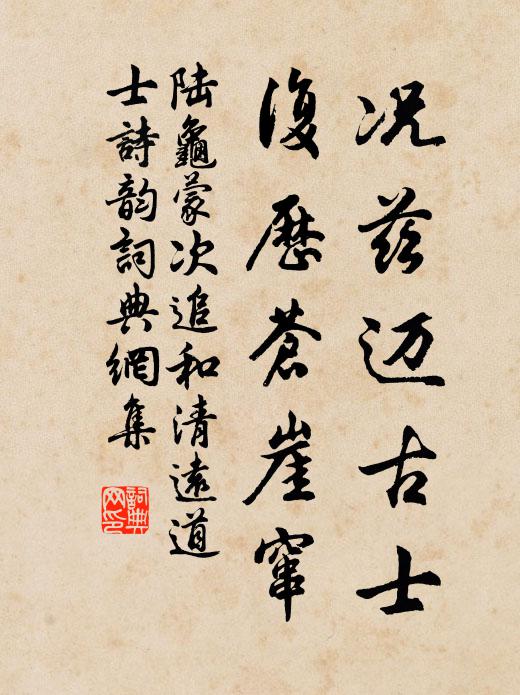 况兹迈古士
復歷蒼崖竄
陆龜蒙次追和清遠道
士詩韵詞典網集
詞典網印